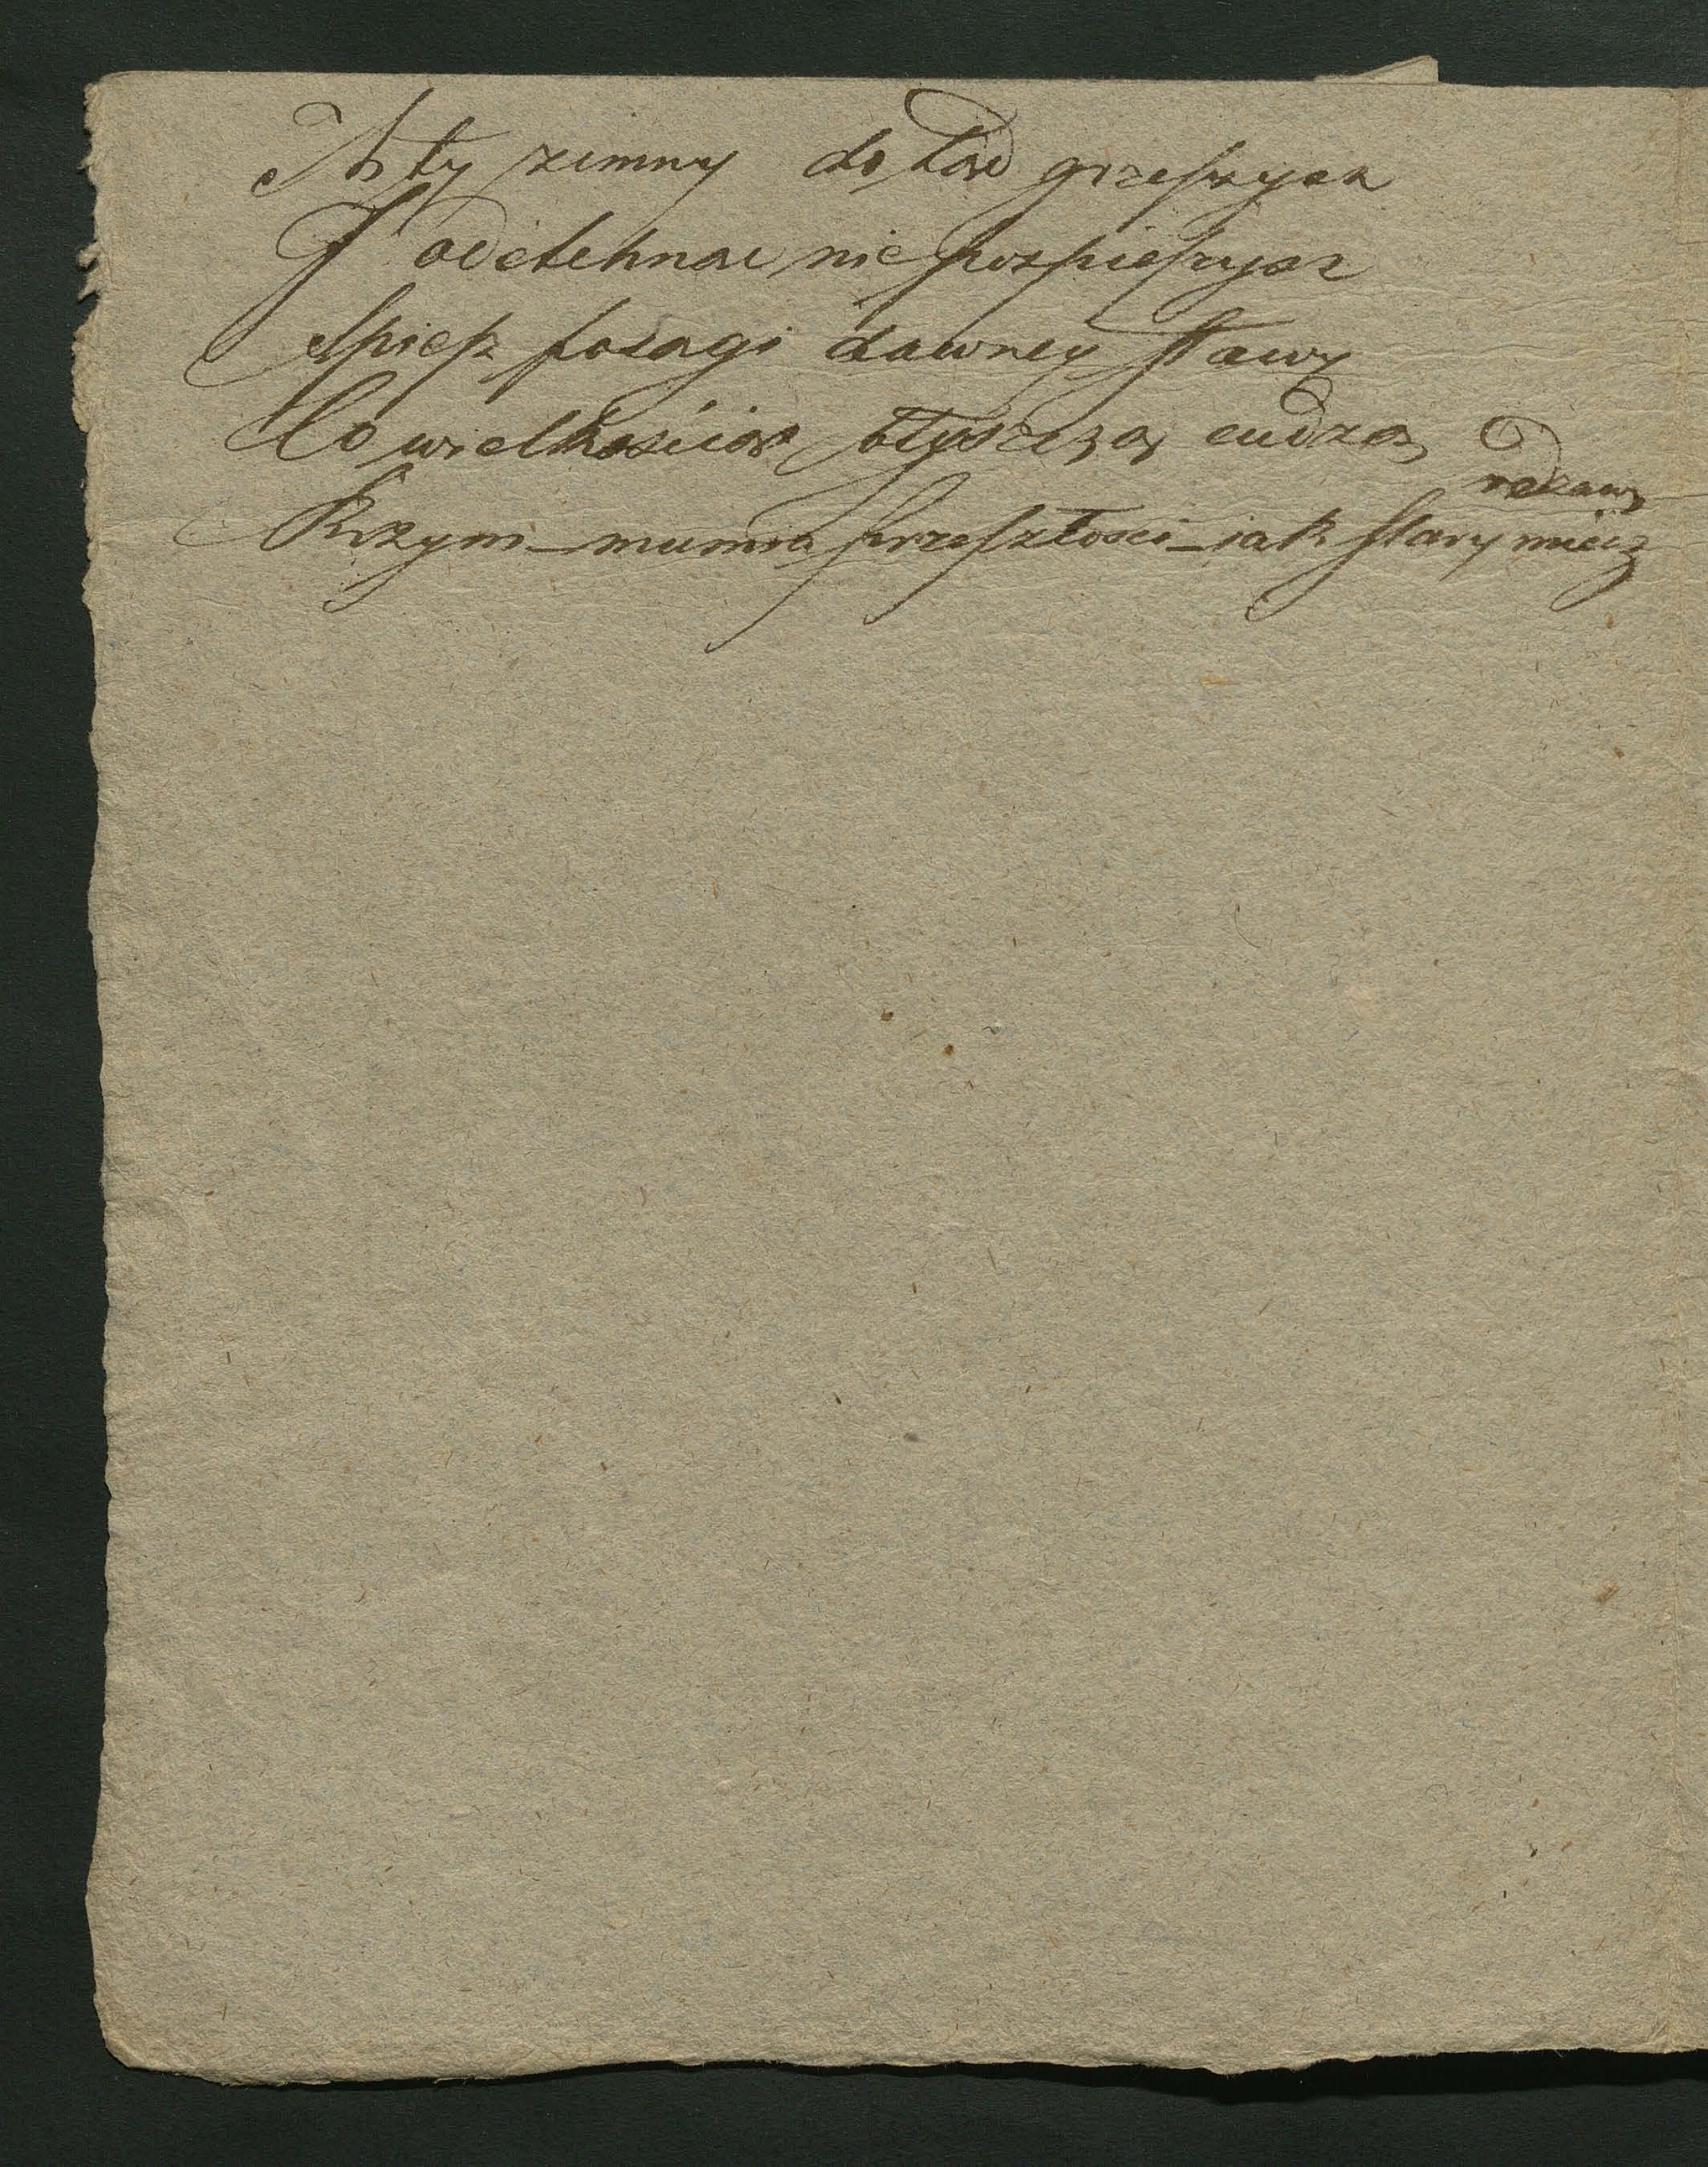 A ty zimny dotąd grzeszysz
I odetchnąć nie pospieszysz
Spiesz posągi dawney sławy
Co wielkością błyszczą cudzą
Rzym – mumia przeszłości – jak stary miecz
rdzawy